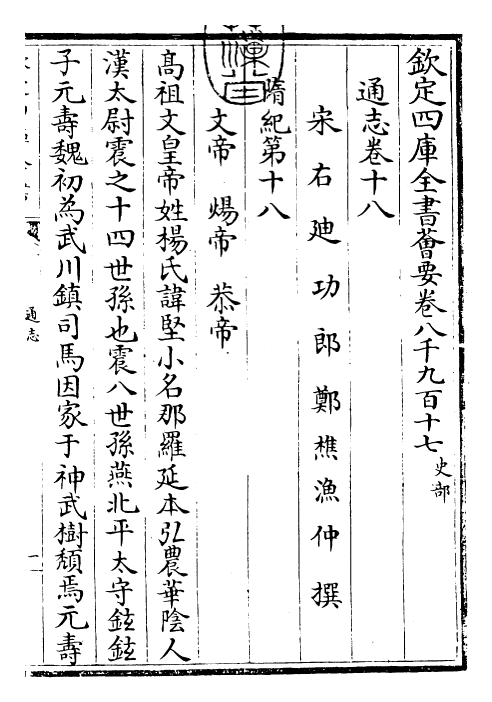 欽定四庫全書薈要卷八千九百十七史部
通志卷十八
宋右迪功郎鄭樵漁仲撰
隋紀第十八
文帝 煬帝 恭帝
髙祖文皇帝姓楊氏諱堅小名那羅延本弘農華陰人
漢太尉震之十四世孫也震八世孫燕北平太守鉉鉉
子元壽魏初為武川鎮司馬因家于神武樹頽焉元壽
通志